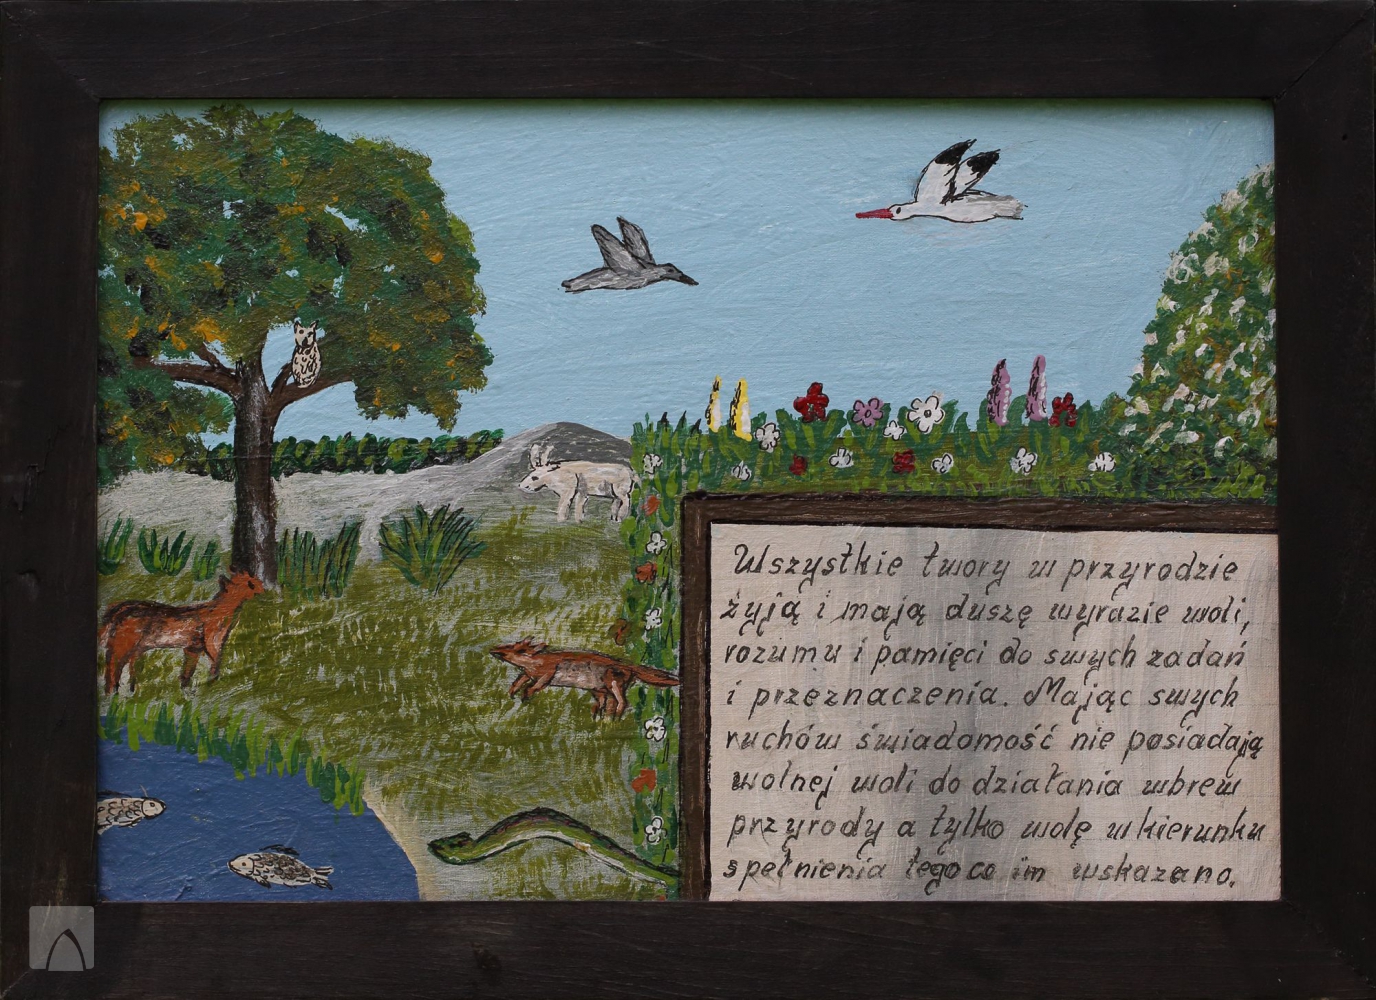 Wszystkie twory w przyrodzie
żyją i mają duszę wyrazie woli,
rozumu i pamięci do swych zadań
i przeznaczenia. Mając swych
ruchów świadomość nie posiadają
wolnej woli do działania wbrew
przyrody a tylko wolę w kierunku
spełnienia tego co im wskazano.